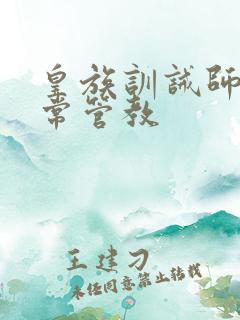 皇族訓誡師
常管教
王建刁
未任同意禁止转载